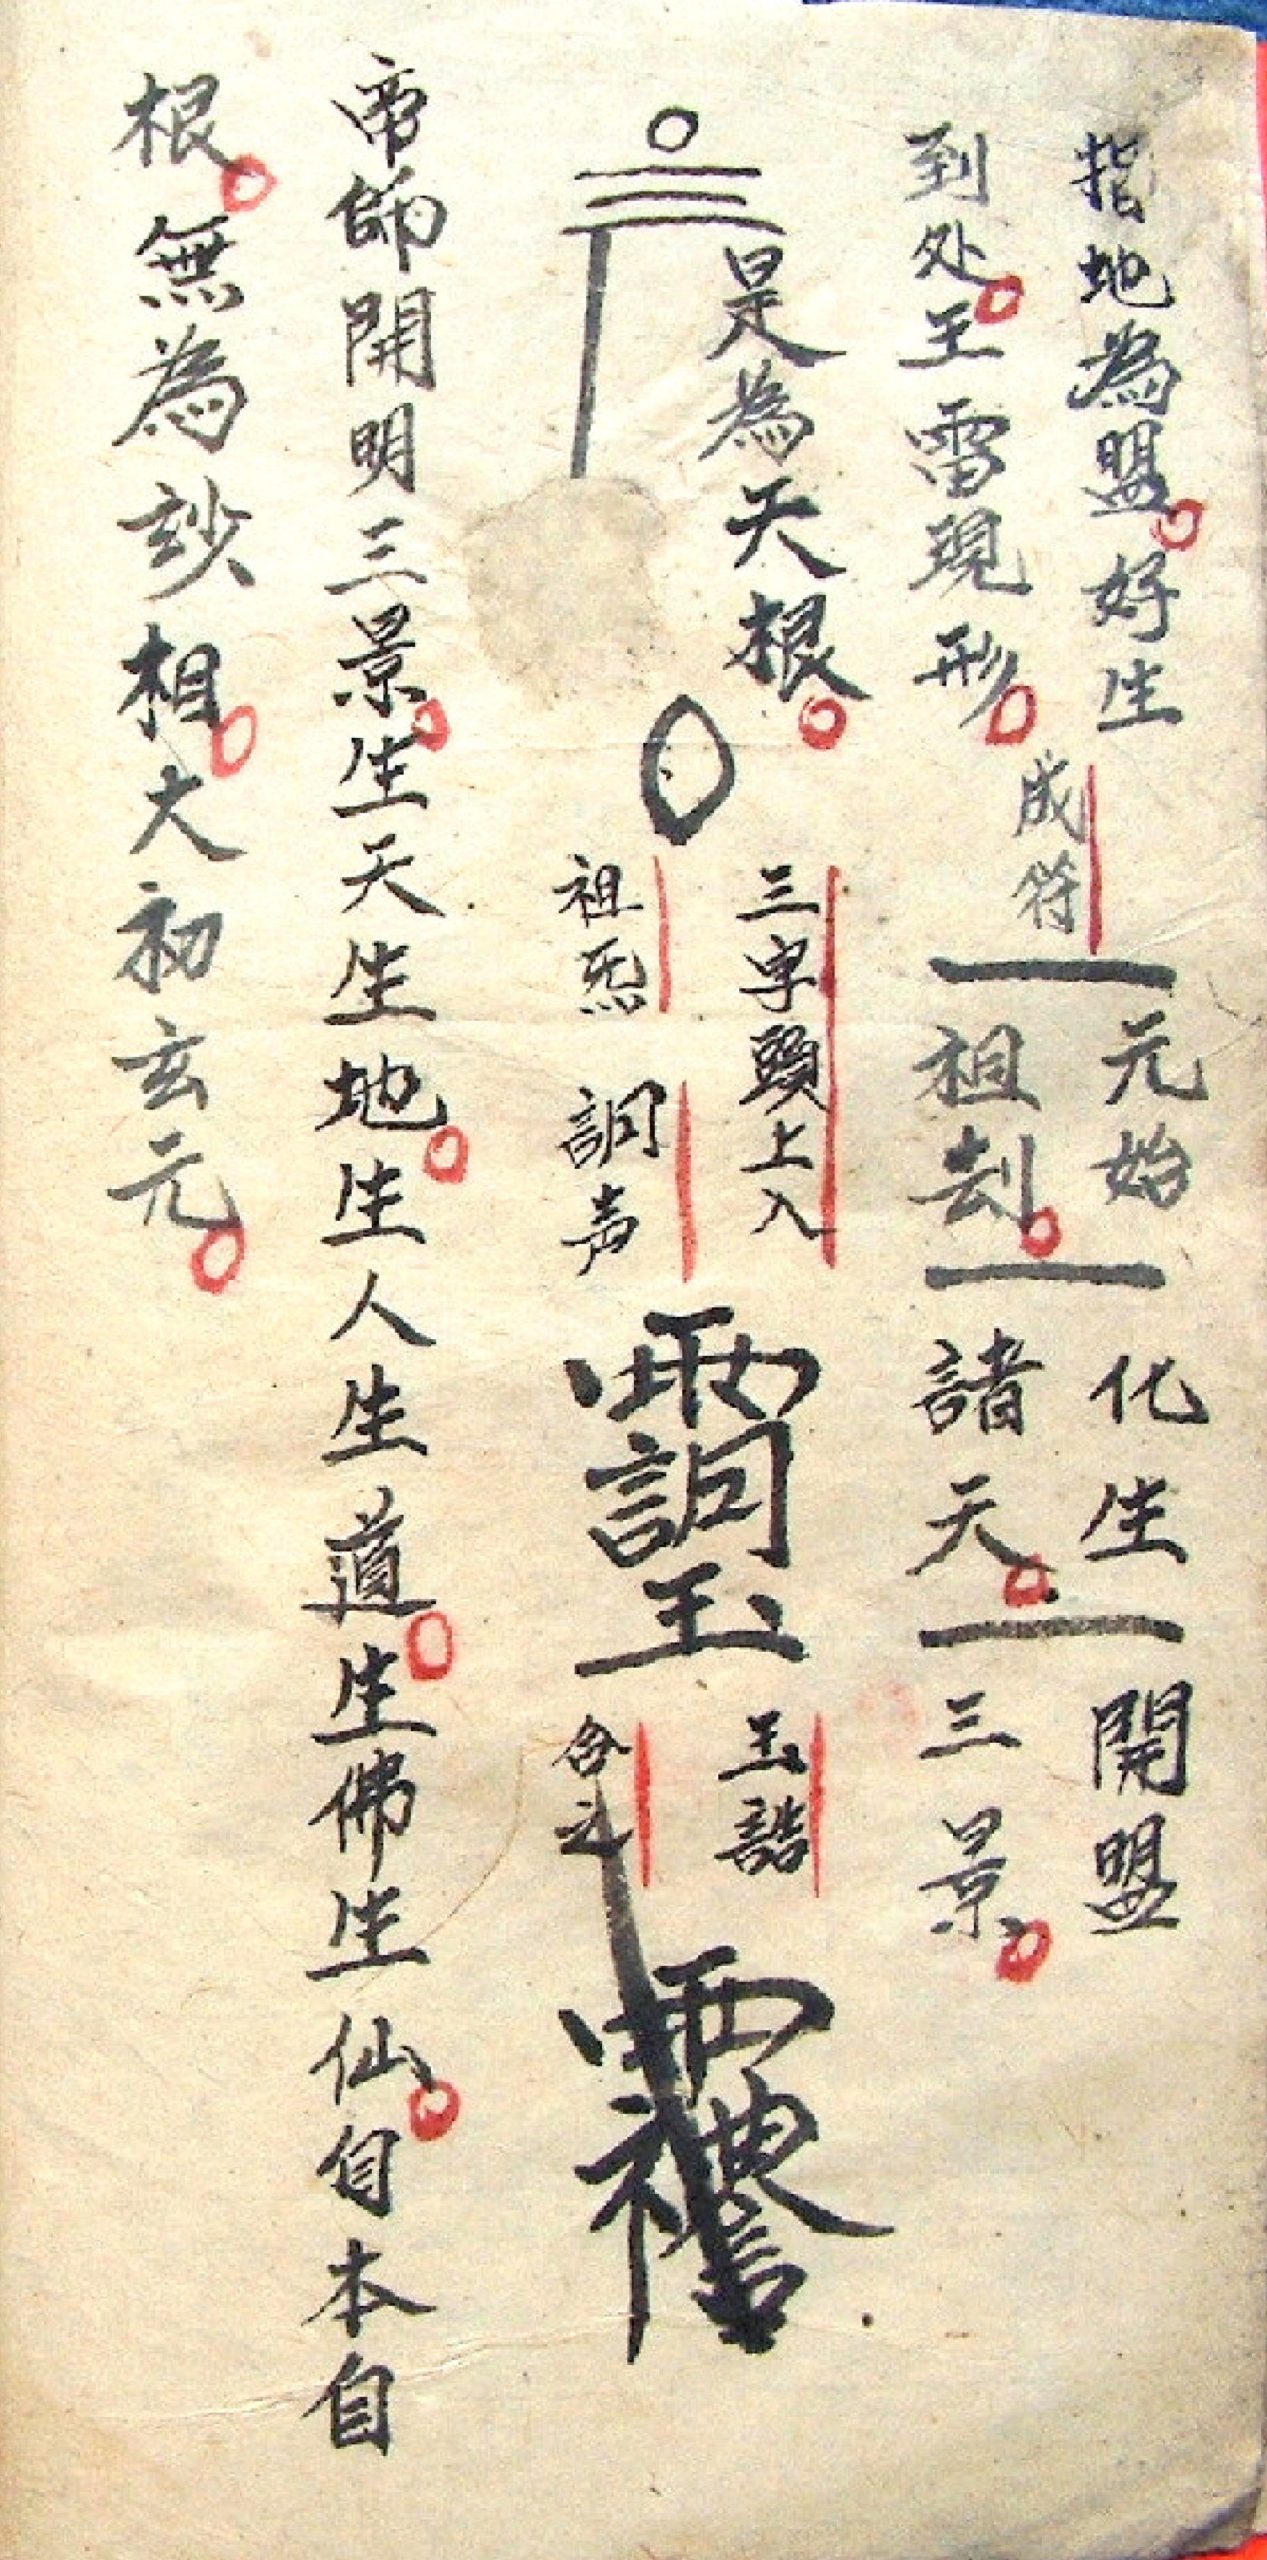 指地為盟好生
到处王雷現形
成符
元始
祖刦
化生
諸天
開盟
三景
是為天根
三字頭上入
祖炁
詷声
玉誥
合之
帝師開明三景生天生地生人生道生佛生仙自本自
根無為妙相大初玄元